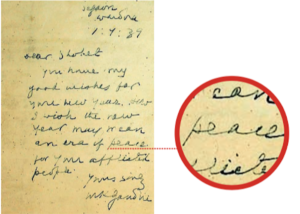 Segaon
Wardha
1.9.39
Dear Shohet
You have my
good wishes for
your new year. How
I wish the new
year may mean
an era of peace
for your afflicted
people.
Yours sincy
MKGandhi
ean
peace
licte